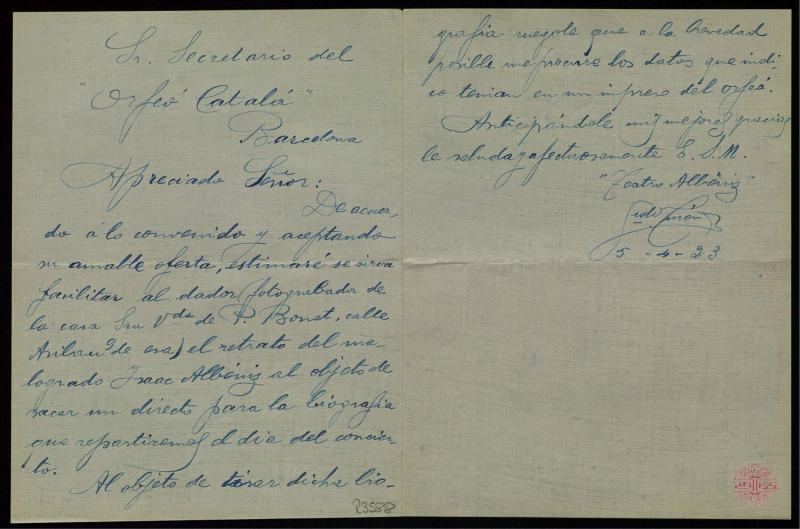 Sr. Secretario del
"Orfeó Català"
Barcelona
Apreciado Señor:
De acuer-
do á lo convenido y aceptando
su amable oferta, estimaré se sirva
facilitar al dador (fotograbador de
la casa Sra Vda de P. Bonet, calle
de esa) el retrato del ma-
logrado Isaac Albéniz al objeto de
sacar un directo para la biografia
que repartiremos el dia del concier-
to.
Al objeto de tirar dicha bio-
grafia ruegole que a la brevedad
posible me procure los datos que indi-
co tenian en un impreso del orfeó.
Anticipándole mil mejores gracias
le saluda y afectuosamente E. S. M.
"Teatro Albéniz"
5-4-23
R3588